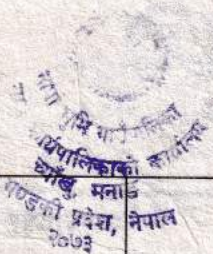 भूमि गाउँपालिका
र्यपालिकाको कार्यालय
मनाङ
गण्डकी प्रदेश, नेपाल
२०७३